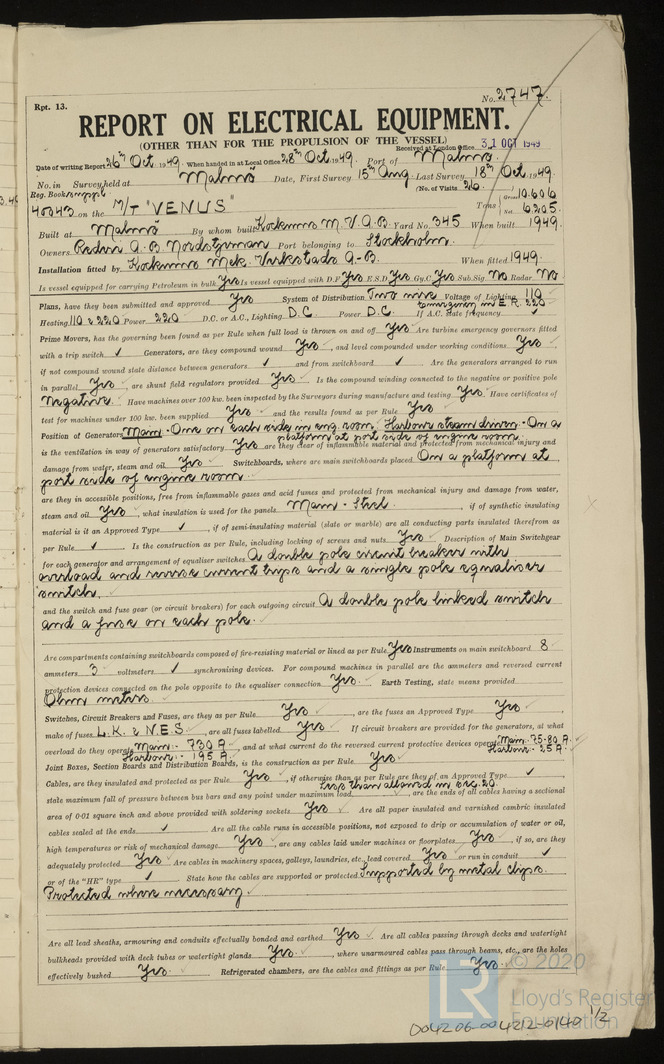 No. 2747.
Rpt. 13.
REPORT ON ELECTRICAL EQUIPMENT.
(OTHER THAN FOR THE PROPULSION OF THE VESSEL)
Received at London Office 31 OCT 1949
Date of writing Report 26th Oct. 1949. When handed in at Local Office 28th Oct. 1949. Port of Malmö.
No. in Survey held at Malmö Date, First Survey 15th Aug. Last Survey 18th Oct. 1949.
Reg. Book. (No. of Visits 26.
40043 on the M/T "VENUS" Tons Gross 10.606
Net 6.205.
Built at Malmö By whom built Kockums M.V.A.B. Yard No. 345 When built 1949.
Owners Rederi A.B. Nordstjernan Port belonging to Stockholm.
Installation fitted by Kockums Mek. Verkstads A-B. When fitted 1949.
Is vessel equipped for carrying Petroleum in bulk Yes Is vessel equipped with D.F. Yes E.S.D. Yes Gy.C. Yes Sub.Sig. No Radar No
Plans, have they been submitted and approved Yes System of Distribution Two wire Voltage of Lighting 110
Emergency in E.R. 220
Heating 110 & 220 Power 220 D.C. or A.C., Lighting D.C. Power D.C. If A.C. state frequency ✓
Prime Movers, has the governing been found as per Rule when full load is thrown on and off Yes Are turbine emergency governors fitted
with a trip switch ✓ Generators, are they compound wound Yes, and level compounded under working conditions Yes,
if not compound wound state distance between generators ✓ and from switchboard ✓ Are the generators arranged to run
in parallel Yes, are shunt field regulators provided Yes Is the compound winding connected to the negative or positive pole
Negative. Have machines over 100 kw. been inspected by the Surveyors during manufacture and testing Yes Have certificates of
test for machines under 100 kw. been supplied Yes and the results found as per Rule Yes
Position of Generators Main - One on each side in eng. room, Harbour steam driven - On a
platform at port side of engine room,
is the ventilation in way of generators satisfactory Yes are they clear of inflammable material and protected from mechanical injury and
damage from water, steam and oil Yes Switchboards, where are main switchboards placed On a platform at
port side of engine room.
are they in accessible positions, free from inflammable gases and acid fumes and protected from mechanical injury and damage from water,
steam and oil Yes, what insulation is used for the panels Main - Steel, if of synthetic insulating
material is it an Approved Type ✓, if of semi-insulating material (slate or marble) are all conducting parts insulated therefrom as
per Rule ✓ Is the construction as per Rule, including locking of screws and nuts Yes Description of Main Switchgear
for each generator and arrangement of equaliser switches A double pole circuit breaker with
overload and reverse current trips and a single pole equaliser
switch.
and the switch and fuse gear (or circuit breakers) for each outgoing circuit A double pole linked switch
and a fuse on each pole.
Are compartments containing switchboards composed of fire-resisting material or lined as per Rule Yes Instruments on main switchboard 8
ammeters 3 voltmeters ✓ synchronising devices. For compound machines in parallel are the ammeters and reversed current
protection devices connected on the pole opposite to the equaliser connection Yes. Earth Testing, state means provided
Ohm meters.
Switches, Circuit Breakers and Fuses, are they as per Rule Yes, are the fuses an Approved Type Yes,
make of fuses L.K. & N.E.S, are all fuses labelled Yes If circuit breakers are provided for the generators, at what
overload do they operate Main:- 730 A, and at what current do the reversed current protective devices operate Main: 75-80 A.
Harbour:- 195 A. Harbour:- 25 A.
Joint Boxes, Section Boards and Distribution Boards, is the construction as per Rule Yes
Cables, are they insulated and protected as per Rule Yes, if otherwise than as per Rule are they of an Approved Type ✓
state maximum fall of pressure between bus bars and any point under maximum load Less than allowed in sec. 20., are the ends of all cables having a sectional
area of 0·01 square inch and above provided with soldering sockets Yes Are all paper insulated and varnished cambric insulated
cables sealed at the ends ✓ Are all the cable runs in accessible positions, not exposed to drip or accumulation of water or oil,
high temperatures or risk of mechanical damage Yes, are any cables laid under machines or floorplates Yes, if so, are they
adequately protected Yes Are cables in machinery spaces, galleys, laundries, etc., lead covered Yes or run in conduit ✓
or of the "HR" type ✓ State how the cables are supported or protected Supported by metal clips.
Protected where necessary.
Are all lead sheaths, armouring and conduits effectually bonded and earthed Yes Are all cables passing through decks and watertight
bulkheads provided with deck tubes or watertight glands Yes, where unarmoured cables pass through beams, etc., are the holes
effectively bushed Yes. Refrigerated chambers, are the cables and fittings as per Rule Yes.
LR
© 2020
Lloyd's Register
Foundation
004206-004212-0140 1/2